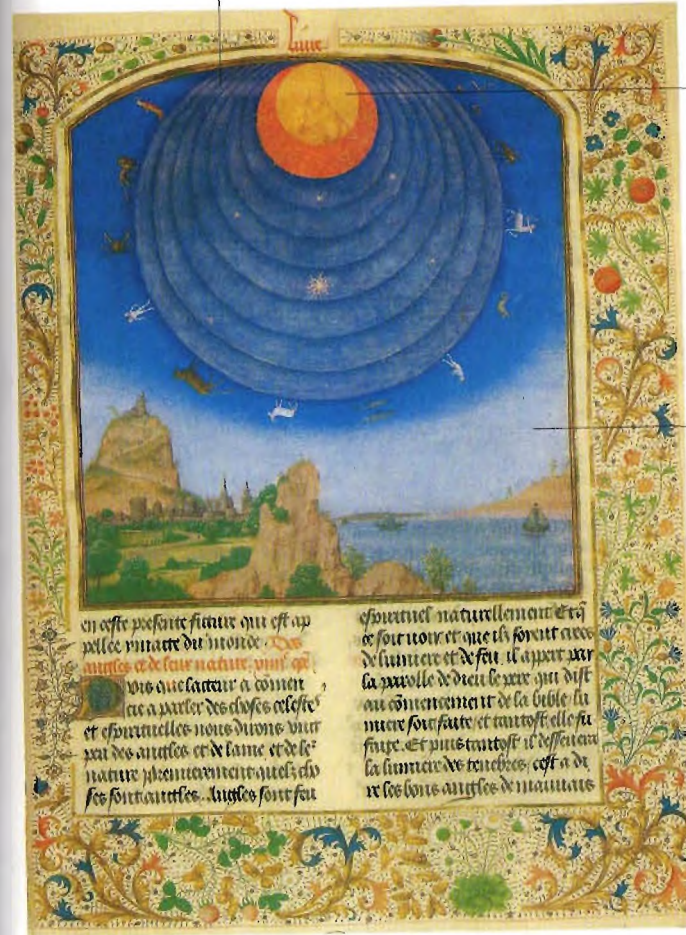 en ceste presente figure qui est ap
pellee ymaige du monde. Des
angles et de leur nature.
Puis que lacteur a comen
cie a parler des choses celeste
et espirituelles nous dirons
peu des angles et de lame et de
nature premierement quelz cho
ses sont angles. Angles sont feu
espirituel naturellement Et q̃
ce soit voir et que ilz soient crees
de lumiere et de feu il appert par
la parolle de dieu le pere qui dist
au cōmencement de la bible lu
miere soit faitte et tantost elle fu
faitte. Et puis tantost il desseura
la lumiere des tenebres cest a di
re les bons angles de mauuais